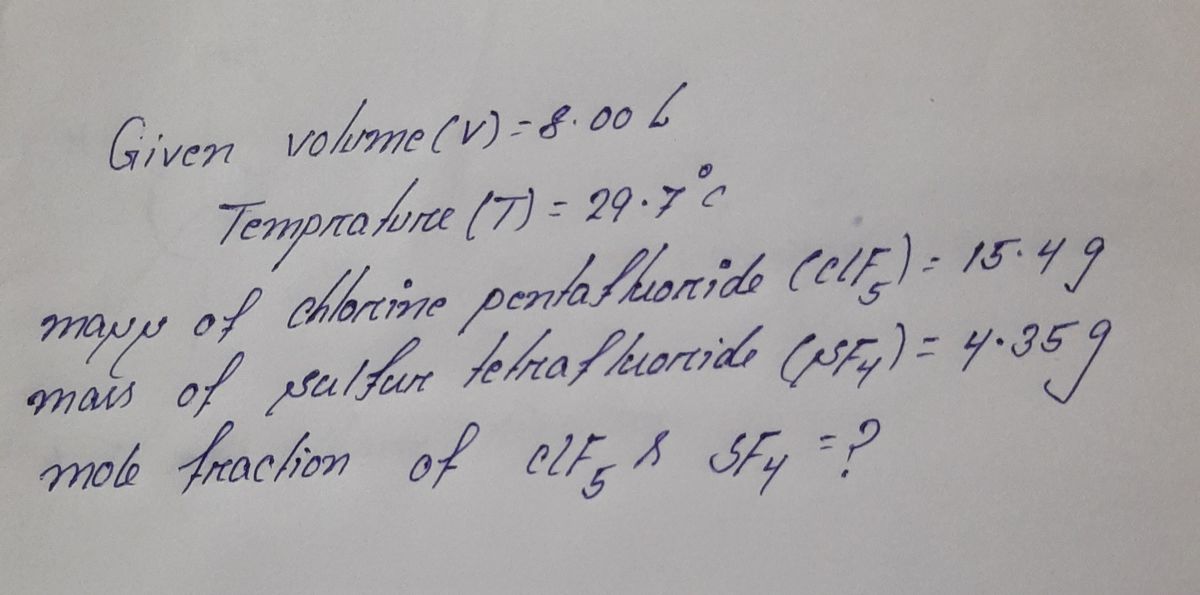 Given volume (V) = 8.00 L
Temprature (T) = 29.7°c
mass of chlorine pentafluoride (ClF5) = 15.4 g
mass of sulfur tetrafluoride (SF4) = 4.35 g
mole fraction of ClF5 & SF4 = ?